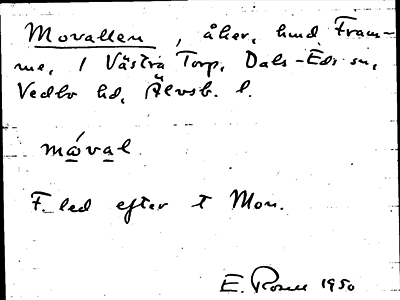 Movallen, åker, hmd Fram-
me, i Västra Torp, Dals-Eds sn,
Vedbo hd, Älvsb. l.
mɷ́val
F. led efter t Mon.
E. Rosell 1950